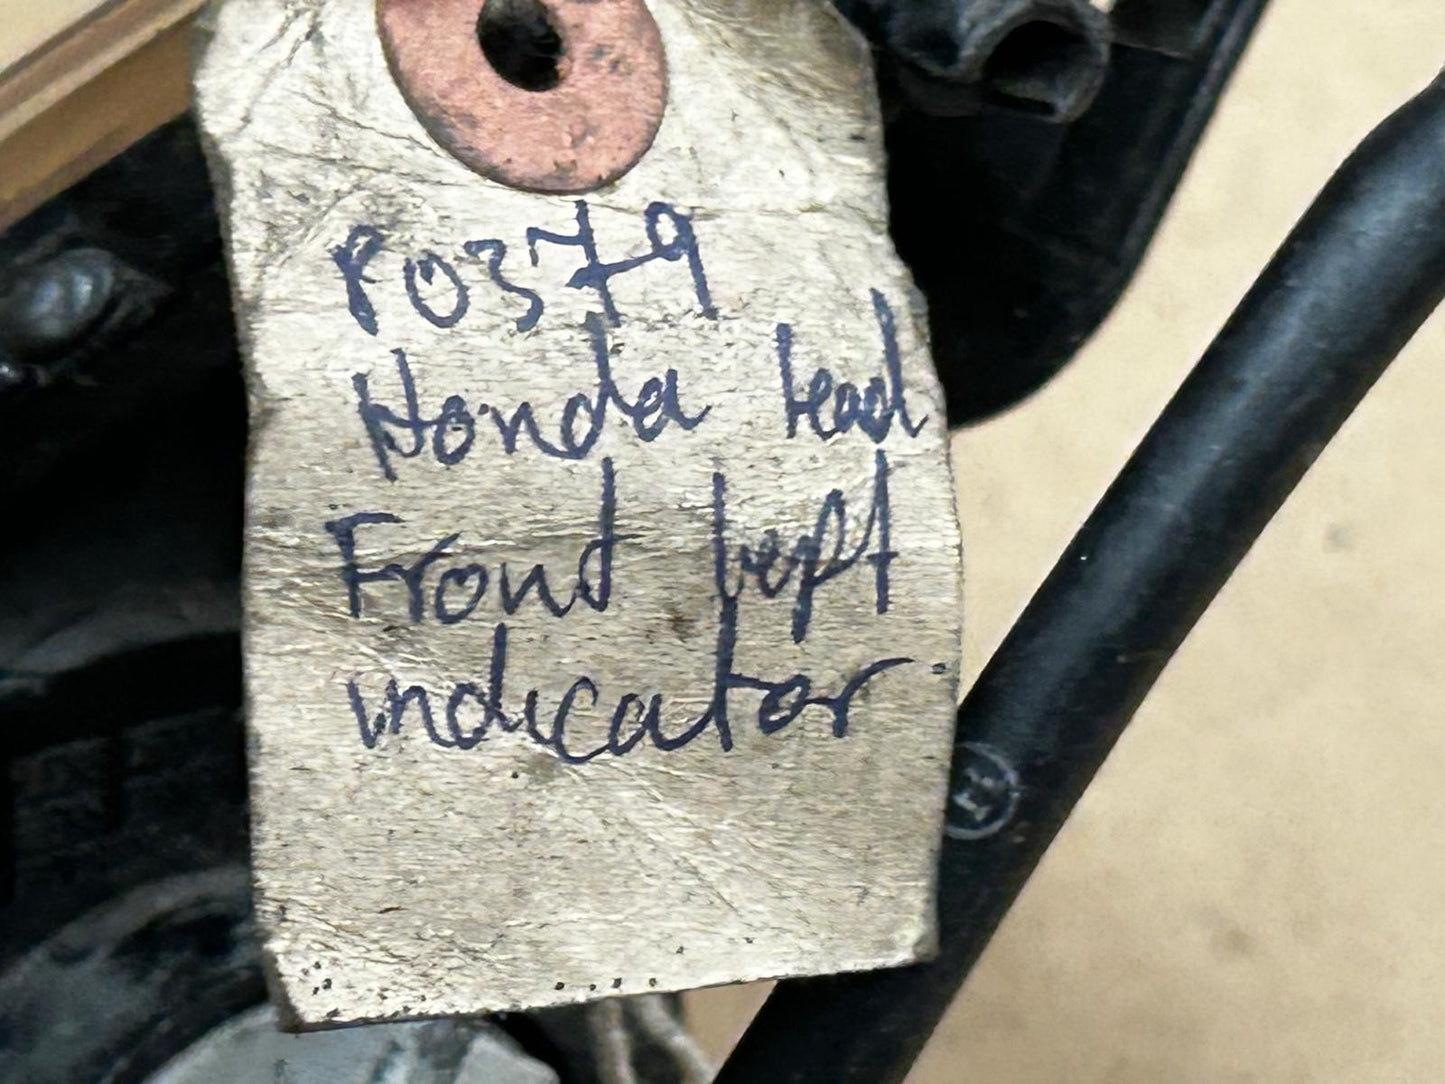 P0379
Honda lead
Front left
indicator